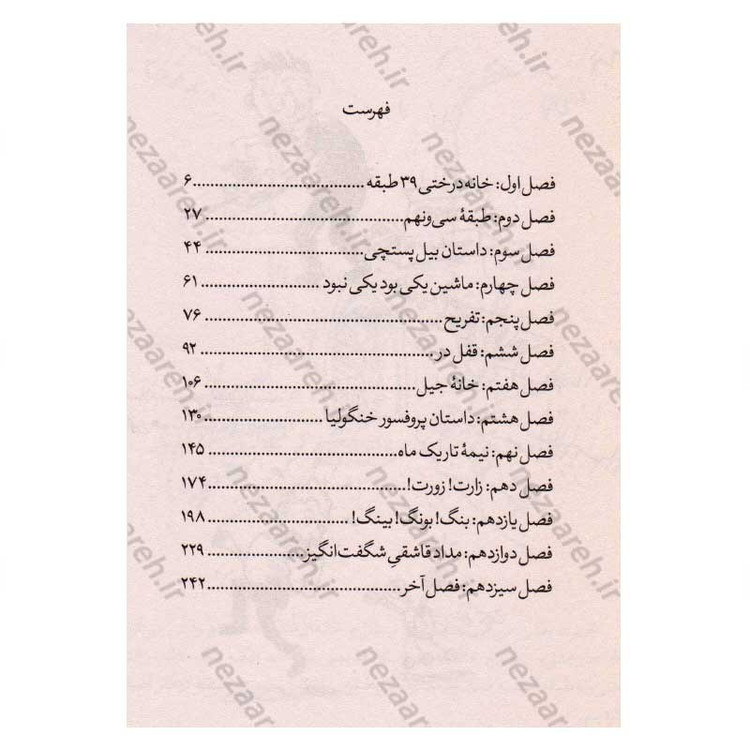 فهرست
فصل اول: خانه درختی ۳۹ طبقه ........................................۶
فصل دوم: طبقهٔ سی‌ونهم..............................................۲۷
فصل سوم: داستان بیل پستچی.................................... ۴۴
فصل چهارم: ماشین یکی بود یکی نبود ........................... ۶۱
فصل پنجم: تفریح...................................................... ۷۶
فصل ششم: قفل در..................................................... ۹۲
فصل هفتم: خانهٔ جیل................................................۱۰۶
فصل هشتم: داستان پروفسور خنگولیا ...........................۱۳۰
فصل نهم: نیمهٔ تاریک ماه........................................... ۱۴۵
فصل دهم: زارت! زورت!.............................................۱۷۴
فصل یازدهم: بنگ! بونگ! بینگ! ................................ ۱۹۸
فصل دوازدهم: مداد قاشقیِ شگفت‌انگیز...................... ۲۲۹
فصل سیزدهم: فصل آخر............................................ ۲۴۲
nezaareh.ir